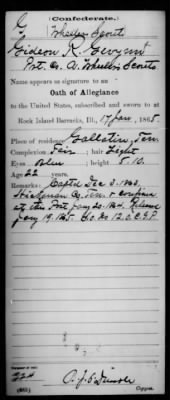 (Confederate.)
G Wheeler Scout
Gideon R. Gwynn
Pvt. Co. A. Wheeler's Scouts
Name appears as signature to an
Oath of Allegiance
to the United States, subscribed and sworn to at
Rock Island Barracks, Ill., 17 Jan, 1865
Place of residence Gallatin, Ten.
Complexion Fair; hair Light
Eyes Blue; height 5.10.
Age 22 years.
Remarks: Captd Dec 3. 1863,
Hickman Co, Ten. & confined
at this Post Jany 20. 1864. Release
Jany 19. 1865. G.O. No 12.O.C.G.P.
224
(662)
Copyist.